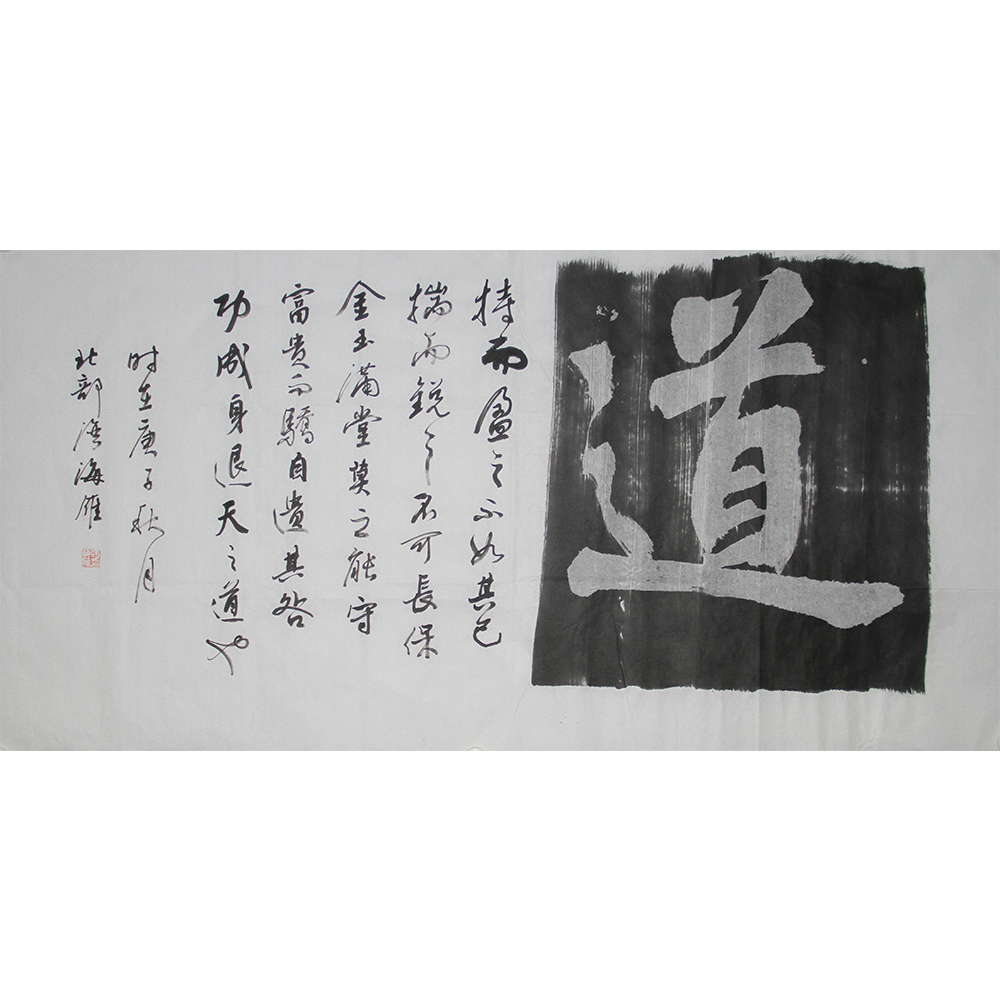 道
持而盈之不如其已
揣而銳之不可長保
金玉滿堂莫之能守
富貴而驕自遺其咎
功成身退天之道也
时在庚子秋月
北部湾海雁